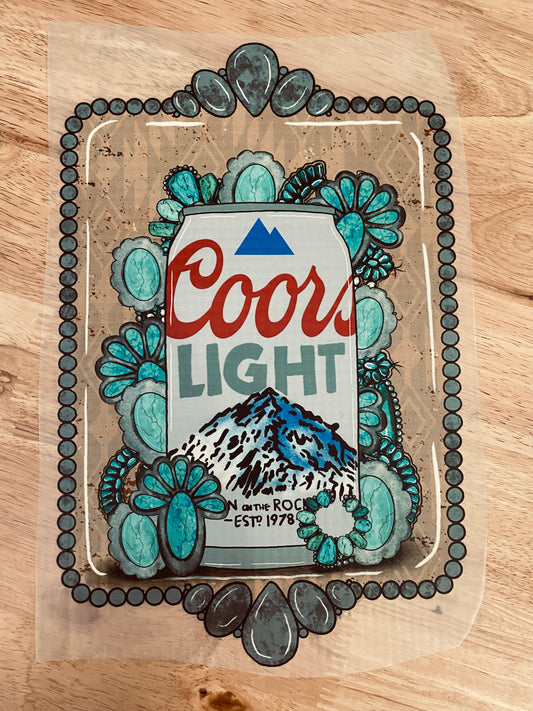 Coors
LIGHT
N ON THE ROCK
-ESTD 1978